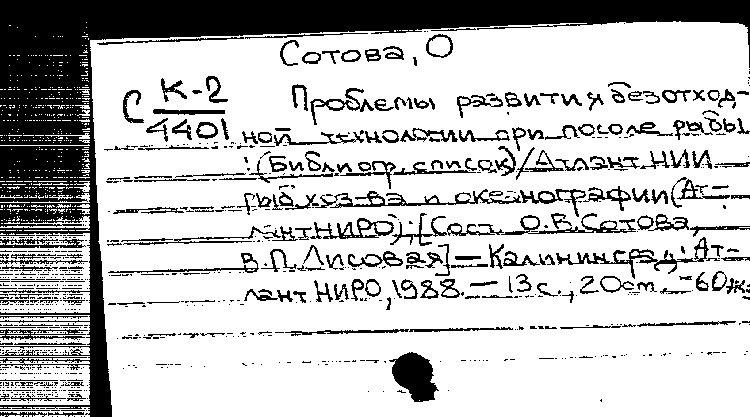 Сотова, О
С К-2/4401
Проблемы развития безотход-
ной технологии при посоле рыбы
: (Библиогр. список) / Атлант. НИИ
рыб. хоз-ва и океанографии (Ат-
лантНИРО); [Сост. О.В. Сотова,
В.П. Лисовая] — Калининград: Ат-
лантНИРО, 1988. — 13 с., 20 см. - 60